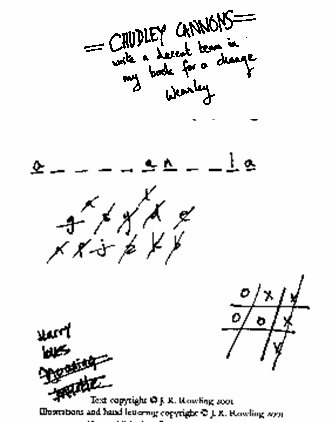 = CHUDLEY CANNONS =
write a decent team in
my book for a change
Weasley
a _ _ _ _ a n _ _ l a
g s y d e
j z k b
O X X
O O X
X
Harry
loves
Moaning
Myrtle
Text copyright © J. K. Rowling 2001
Illustrations and hand lettering copyright © J. K. Rowling 2001